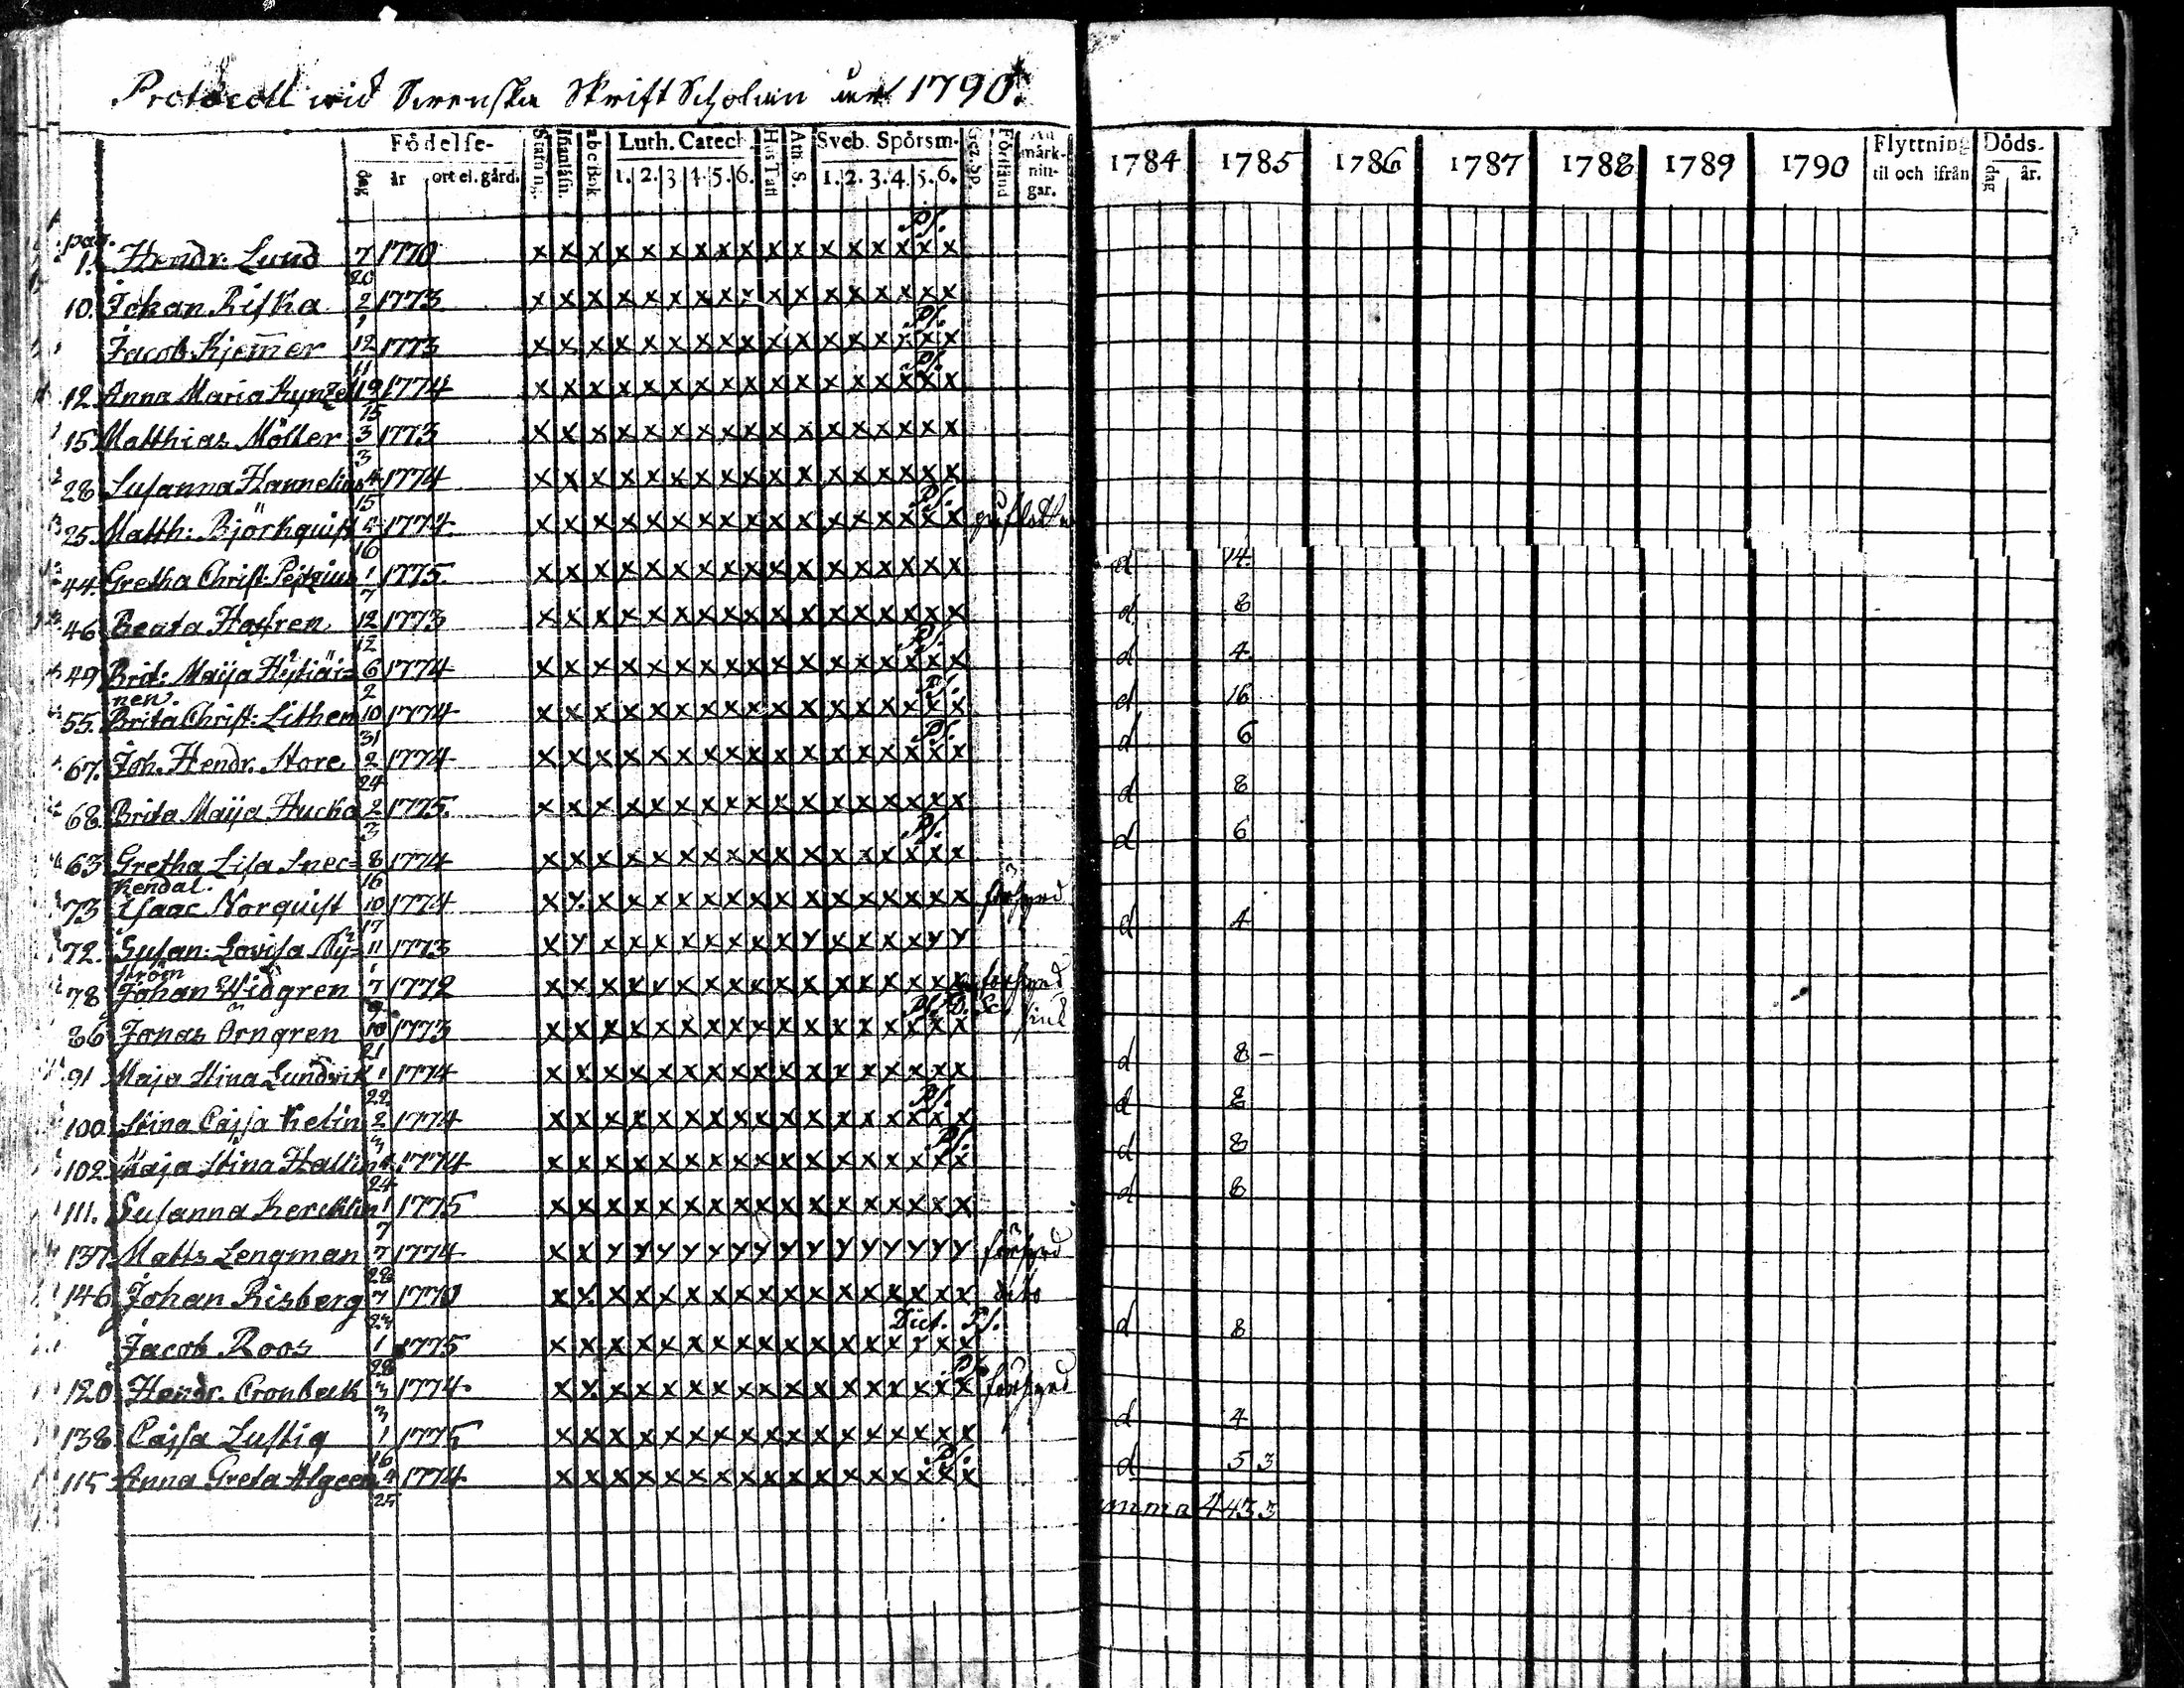 Protocoll wid Swenska Skrift Scholan 1790.
Födelse- Luth. Catech. Sveb. Spörsm. Förstånd An märk- nin- gar.
dag år ort el. gård. 1. 2. 3 4. 5. 6. 1. 2. 3. 4. 5. 6.
1784 1785 1786 1787 1788 1789 1790 Flyttning til och ifrån Döds- dag år.
pag.
1. Hendr. Lund 7 20 1770 x x x x x x x x x x x x x x x x x Ps.
10. Johan Riska 2 1 1773 x x x x x x x x x x x x x x x x x
Jacob Kjem̄er 12 11 1773 x x x x x x x x x x x x x x x x x Ps.
12. Anna Maria Kynzel 12 15 1774 x x x x x x x x x x x x x x x x x Ps.
15. Matthias Möller 3 3 1773 x x x x x x x x x x x x x x x x x
28. Susanna Hannelius 4 15 1774 x x x x x x x x x x x x x x x x x
25. Matth: Björkquist 16 1774 x x x x x x x x x x x x x x x x x Ps.
44. Gretha Christ. 1 7 1775 x x x x x x x x x x x x x x x x x d 14.
46. Beata Hoffren 12 12 1773 x x x x x x x x x x x x x x x x x d 8
49. Brit: Maija Hytiäi= nen. 6 2 1774 x x x x x x x x x x x x x x x x x Ps. d 4.
55. Brita Christ: Lithen 10 31 1774 x x x x x x x x x x x x x x x x x Ps. d 16
67. Joh. Hendr. Store 2 24 1774 x x x x x x x x x x x x x x x x x Ps. d 6
68. Brita Maija Hucka 2 3 1775. x x x x x x x x x x x x x x x x x d 8
63. Gretha Lisa Snec= kendal. 8 16 1774 x x x x x x x x x x x x x x x x x Ps. d 6
73 Isaac Norquist 10 17 1774 x x x x x x x x x x x x x x x x x
72. Susan: Lovisa Ny= ström 11 1 1773 x y x x x x x x x x y x x x x y y d 4
78 Johan Widgren 7 9 1772 x x x x x x x x x x x x x x x x x
86 Jonas Örngren 10 21 1773 x x x x x x x x x x x x x x x x x Ps.
91 Maja Stina Lundvik 1 22 1774 x x x x x x x x x x x x x x x x x d 8 -
100. Stina Cajsa Kelin 2 3 1774 x x x x x x x x x x x x x x x x x Ps. d 8
102. Maja Stina Hallin 24 1774 x x x x x x x x x x x x x x x x x Ps. d 8
111. Susanna Kercklin 1 7 1775 x x x x x x x x x x x x x x x x x d 8
137. Matts Lengman 7 28 1774 x x y y y y y y y y y y y y y y y
146 Johan Risberg 7 23 1770 x x x x x x x x x x x x x x x x x dito
Jacob Roos 1 28 1775 x x x x x x x x x x x x x x x x x Dict. Ps. d 8
120 Hendr. Cronbeck 3 3 1774. x x x x x x x x x x x x x x x x x Ps.
138. Cajsa Lustig 1 16 1775 x x x x x x x x x x x x x x x x x d 4
115 Anna Greta Algeen 4 25 1774 x x x x x x x x x x x x x x x x x Ps. d 5 3
umma 443 3